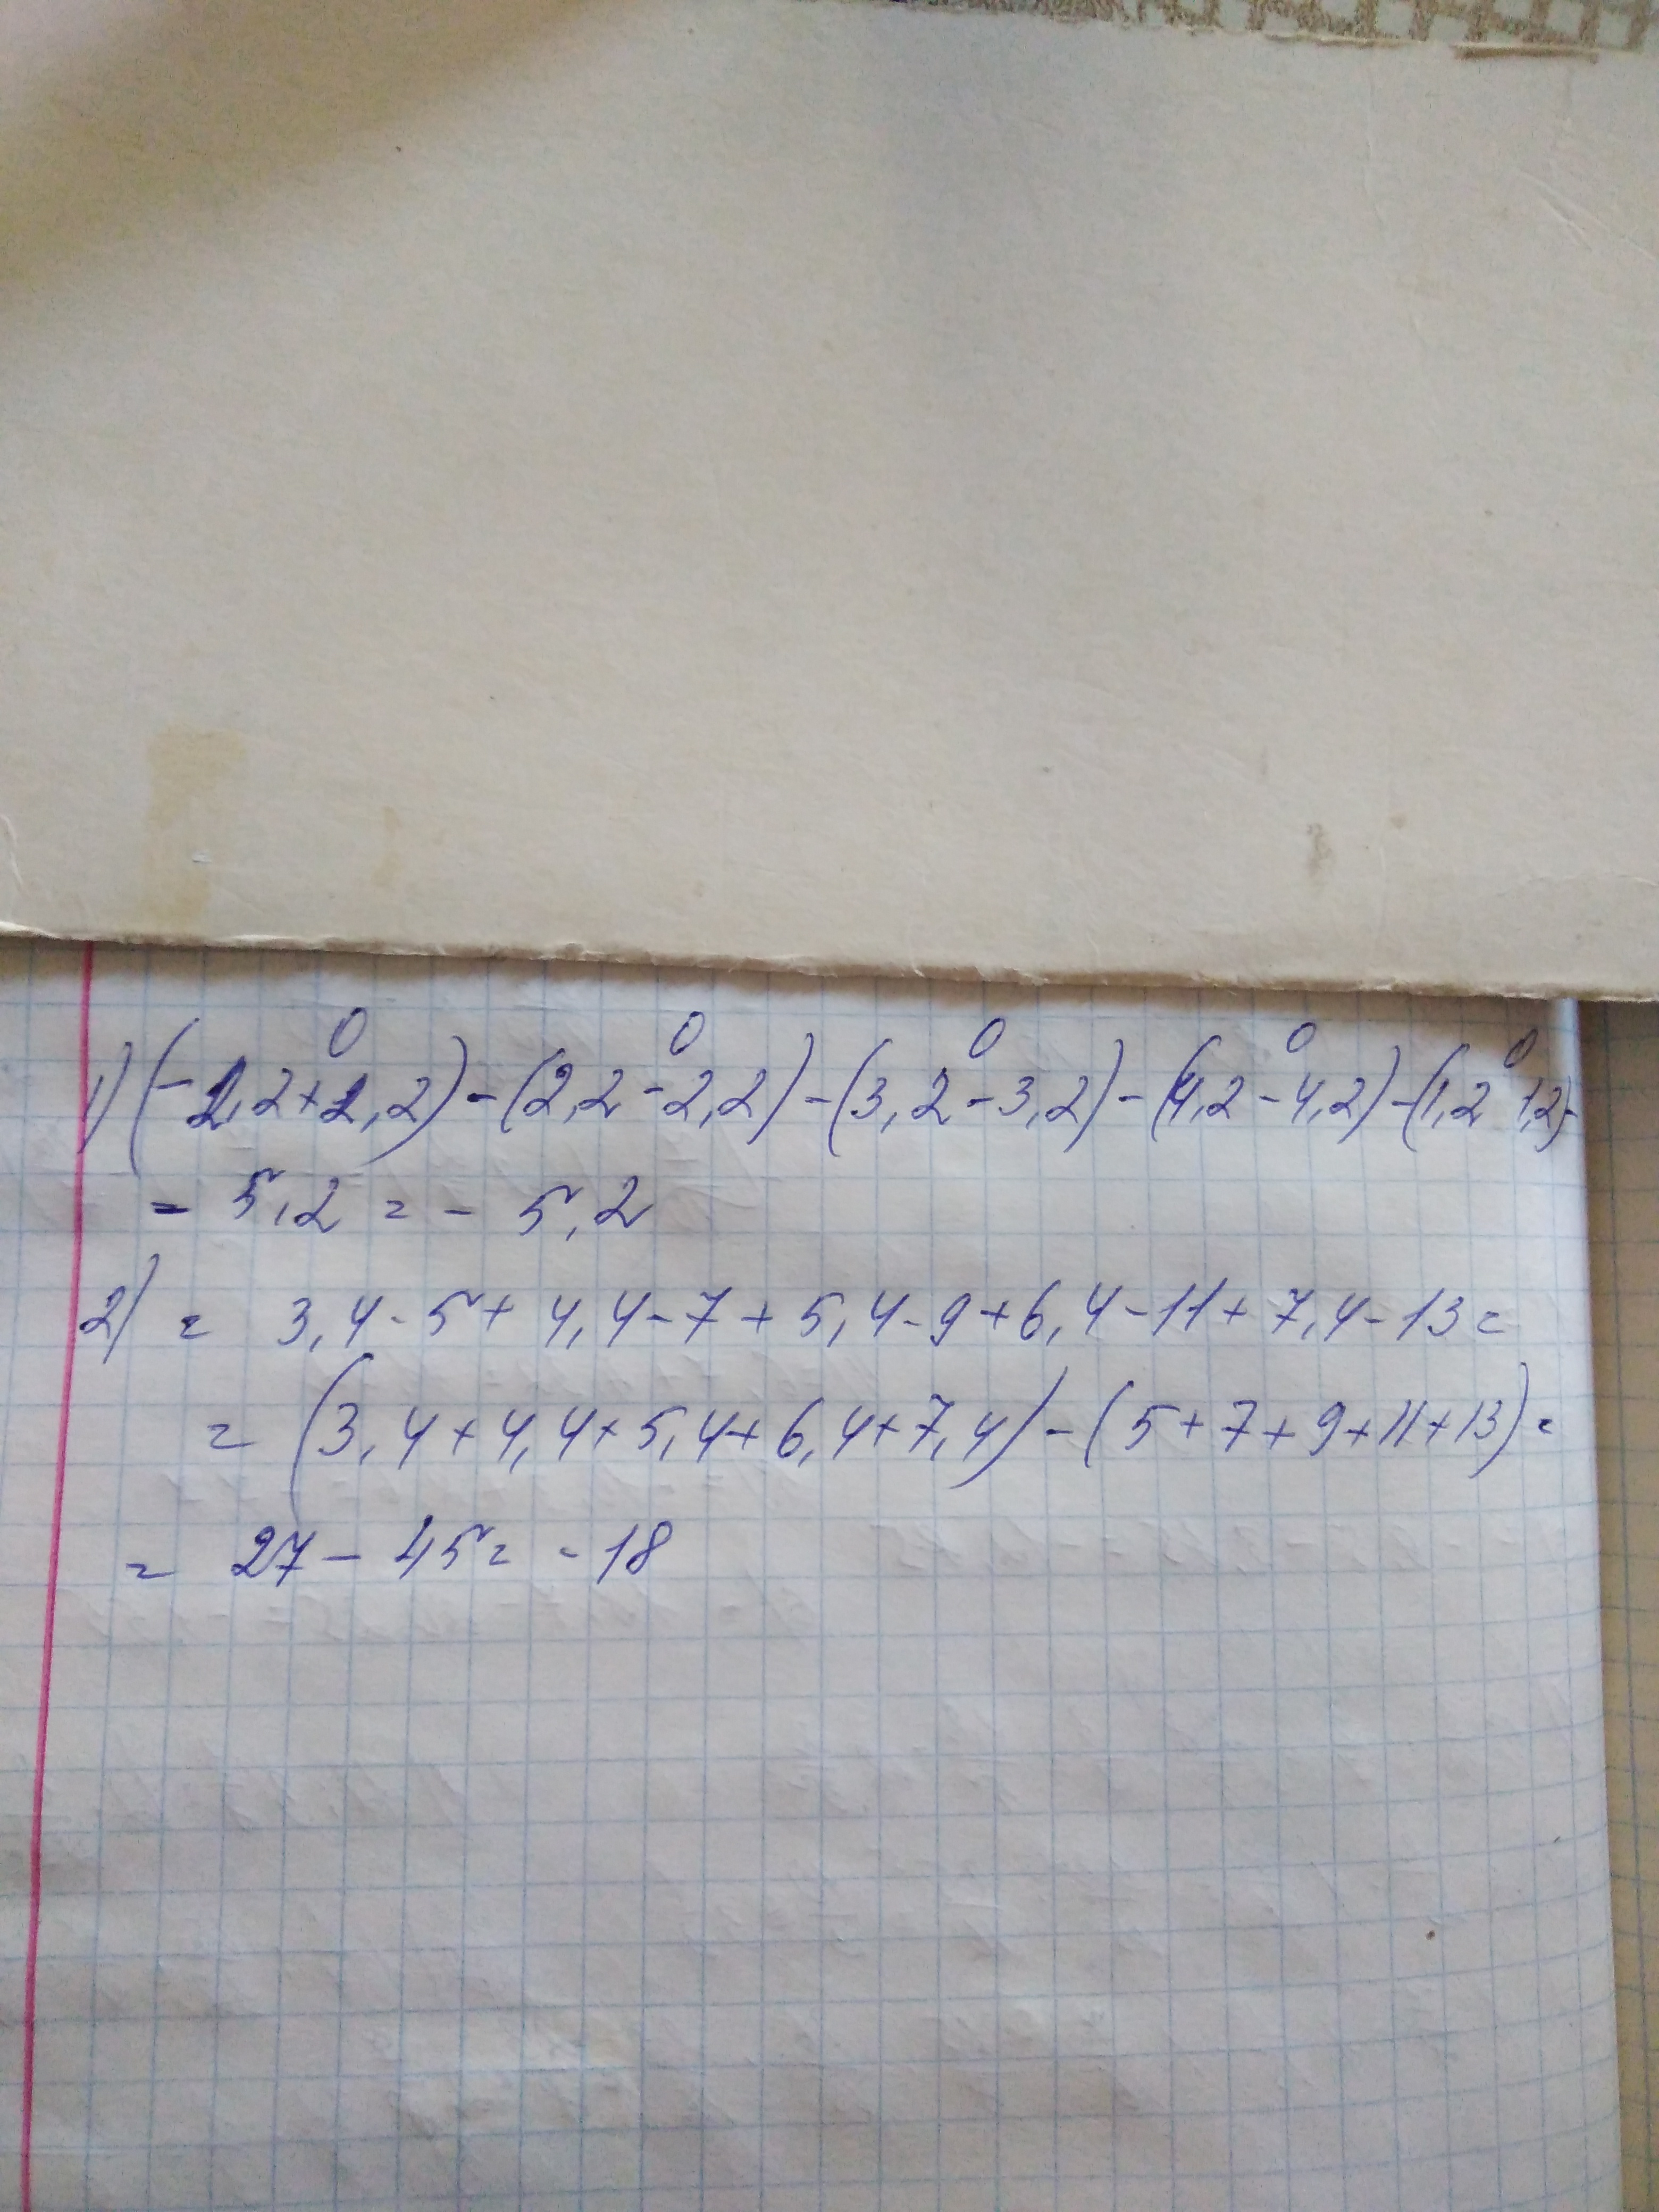 0 0 0 0 0
1) (-2,2+2,2)-(2,2-2,2)-(3,2-3,2)-(4,2-4,2)-(1,2 1,2)-
- 5,2 = - 5,2
2) = 3,4-5+4,4-7+5,4-9+6,4-11+7,4-13=
= (3,4+4,4+5,4+6,4+7,4)-(5+7+9+11+13)=
= 27-45= -18